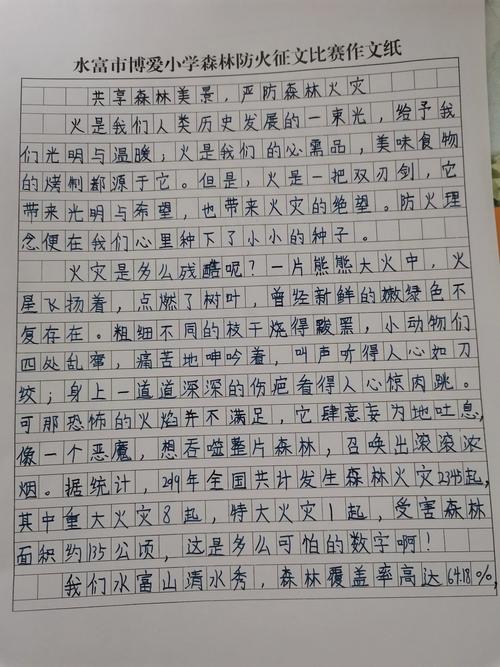 水富市博爱小学森林防火征文比赛作文纸
共享森林美景，严防森林火灾
火是我们人类历史发展的一束光，给予我
们光明与温暖；火是我们的必需品，美味食物
的烤制都源于它。但是，火是一把双刃剑，它
带来光明与希望，也带来火灾的绝望。防火理
念便在我们心里种下了小小的种子。
火灾是多么残酷呢？一片熊熊大火中，火
星飞扬着，点燃了树叶，曾经新鲜的嫩绿色不
复存在。粗细不同的枝干烧得黢黑，小动物们
四处乱窜，痛苦地呻吟着，叫声听得人心如刀
绞；身上一道道深深的伤疤看得人心惊肉跳。
可那恐怖的火焰并不满足，它肆意妄为地吐息，
像一个恶魔，想吞噬整片森林，召唤出滚滚浓
烟。据统计，年全国共计发生森林火灾2345起，
其中重大火灾8起，特大火灾1起，受害森林
面积约135公顷，这是多么可怕的数字啊！
我们水富山清水秀，森林覆盖率高达64.18%，